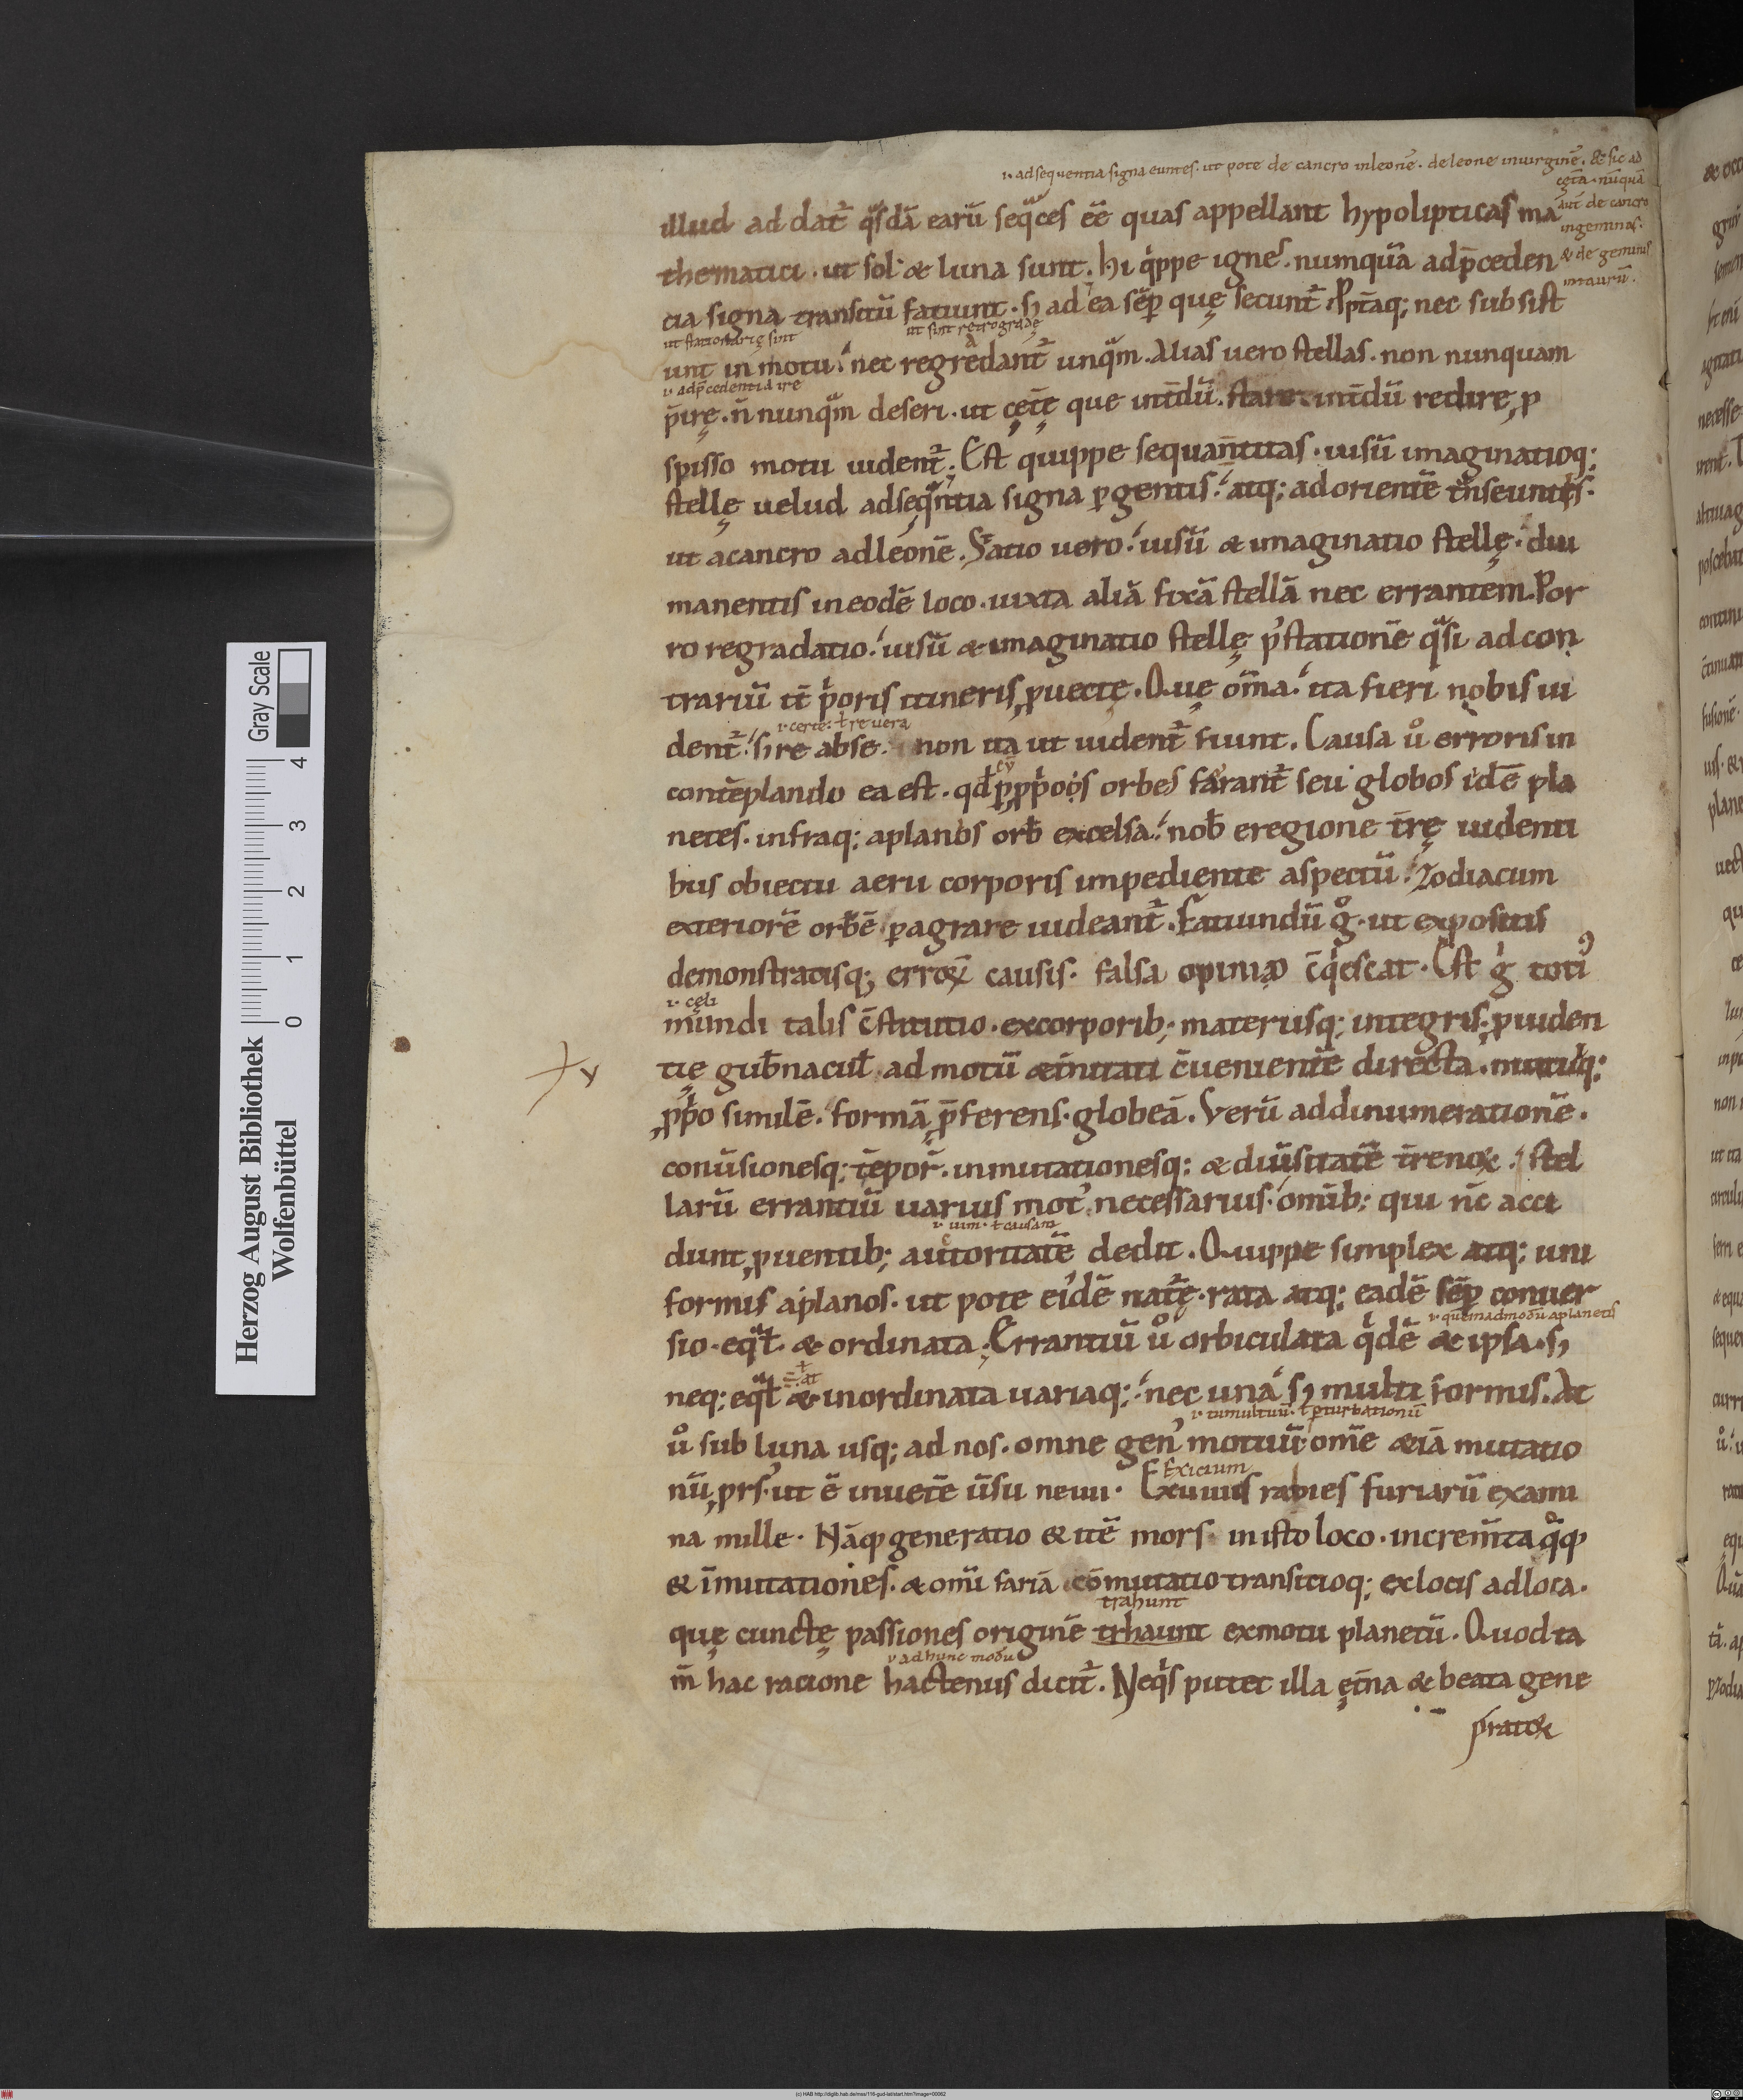 .i. ad sequentia signa euntes. ut pote de cancro in leonē. de leone in uirginē. & sic ad
cętą. nūquā
aut̄ de cancro
in geminos.
& de geminis
in taurū.
illud ad dat̄ qͣsdā earū seqͣces eē quas appellant hypolipticas ma
thematici. ut sol & luna sunt. hi q'ppe ignes. numquā ad p̄ceden
tia signa transitū fatiunt. ſ; ad ea sēp quę secunt̄. Ppt̄aq; nec subsist
ut stationarię sint
ut sint retrogradę
unt in motu. nec regredant̄ unqͣm. Alias uero stellas. non nunquam
.i. ad p̄cedentia ire
p̄irę. n̄ nunqͣm deseri. ut cęt̄ę que int̄dū. stare. int̄dū redire, p
spisso motu uident̄. Est quippe sequan̄titas. uisū imaginatioq;
stellę uelud ad seqͣntia signa pgentis. atq; ad orientē tͣnseuntis.
ut a cancro ad leonē. Statio uero. uisū & imaginatio stellę. diu
manentis in eodē loco. iuxta aliā fixā stellā nec errantem. Por
ro regradatio. uisū & imaginatio stellę p' stationē qͣsi ad con
trariū it̄ p'oris itineris, puectę. Quę om̄a. ita fieri nobis ui
.i. certe. ł re uera
dent̄. ſ; re abse. non ita ut uident̄ fiunt. Causa uº erroris in
contēplando ea est. qd̄ p, pp̄oºs orbes farant̄ seu globos idē pla
netes. infraq; aplanos orb̄ excelsa. nob̄ e regione t̄rę uidenti
bus obiectu aerii corporis impediente aspectū. Zodiacum
exteriorē orbē pagrare uideant̄. Fatiundū gº. ut expositis
demonstratisq; erroꝝ causis. falsa opinio c̄q'escat. Est g' toti'
.i. cęli
mundi talis c̄stitutio. ex corporib; materiisq; integris. puiden
tię gub̄nacul̄. ad motū & initati c̄uenientē directa. mutuq;
,pp̄o similē. formā p̄ferens. globeā. Verū ad dinumerationē.
conūsionesq; tēpor̄. inmutationesq; & diūsitatē t̄renoꝝ. stel
larū errantiū uarius mot' necessarius. omīb; qui nc̄ acci
.i. uim. ł causam
dunt, puentib; autoritatē dedit. Quippe simplex atq; uni
formis aplanos. ut pote ei'dē nat̄ę. rata atq; eadē sēp conuer
.i. quemadmodū aplanetis
sio. eqͣł. & ordinata. Errantiū uº orbiculata q'dē & ipsa. ſ;
neq; eqͣł & inordinata uariaq; nec una ſ; multi formis. At
.i. tumultuū. ł pturbationū
uº sub luna usq; ad nos. omne gen' motuū. om̄e & iā mutatio
Exicium
nū, prs'. ut ē in uetē ūsu neuii. Exuuiis rabies furiarū exami
na mille. Nāq generatio & itē mors in isto loco. increm̄ta qͦq
& īmutationes. & omī fariā cōmutatio transitioq; ex locis ad loca.
trahunt
quę cunctę passiones originē trhaunt ex motu planetū. Quod ta
.i. ad hunc modū
m̄ hac racione hactenus dicit̄. Neq's putet illa ęt̄na & beata gene
pratioꝝ
Herzog August Bibliothek
Wolfenbüttel
Gray Scale
0 1 2 3 4
(c) HAB http://diglib.hab.de/mss/116-gud-lat/start.htm?image=00062